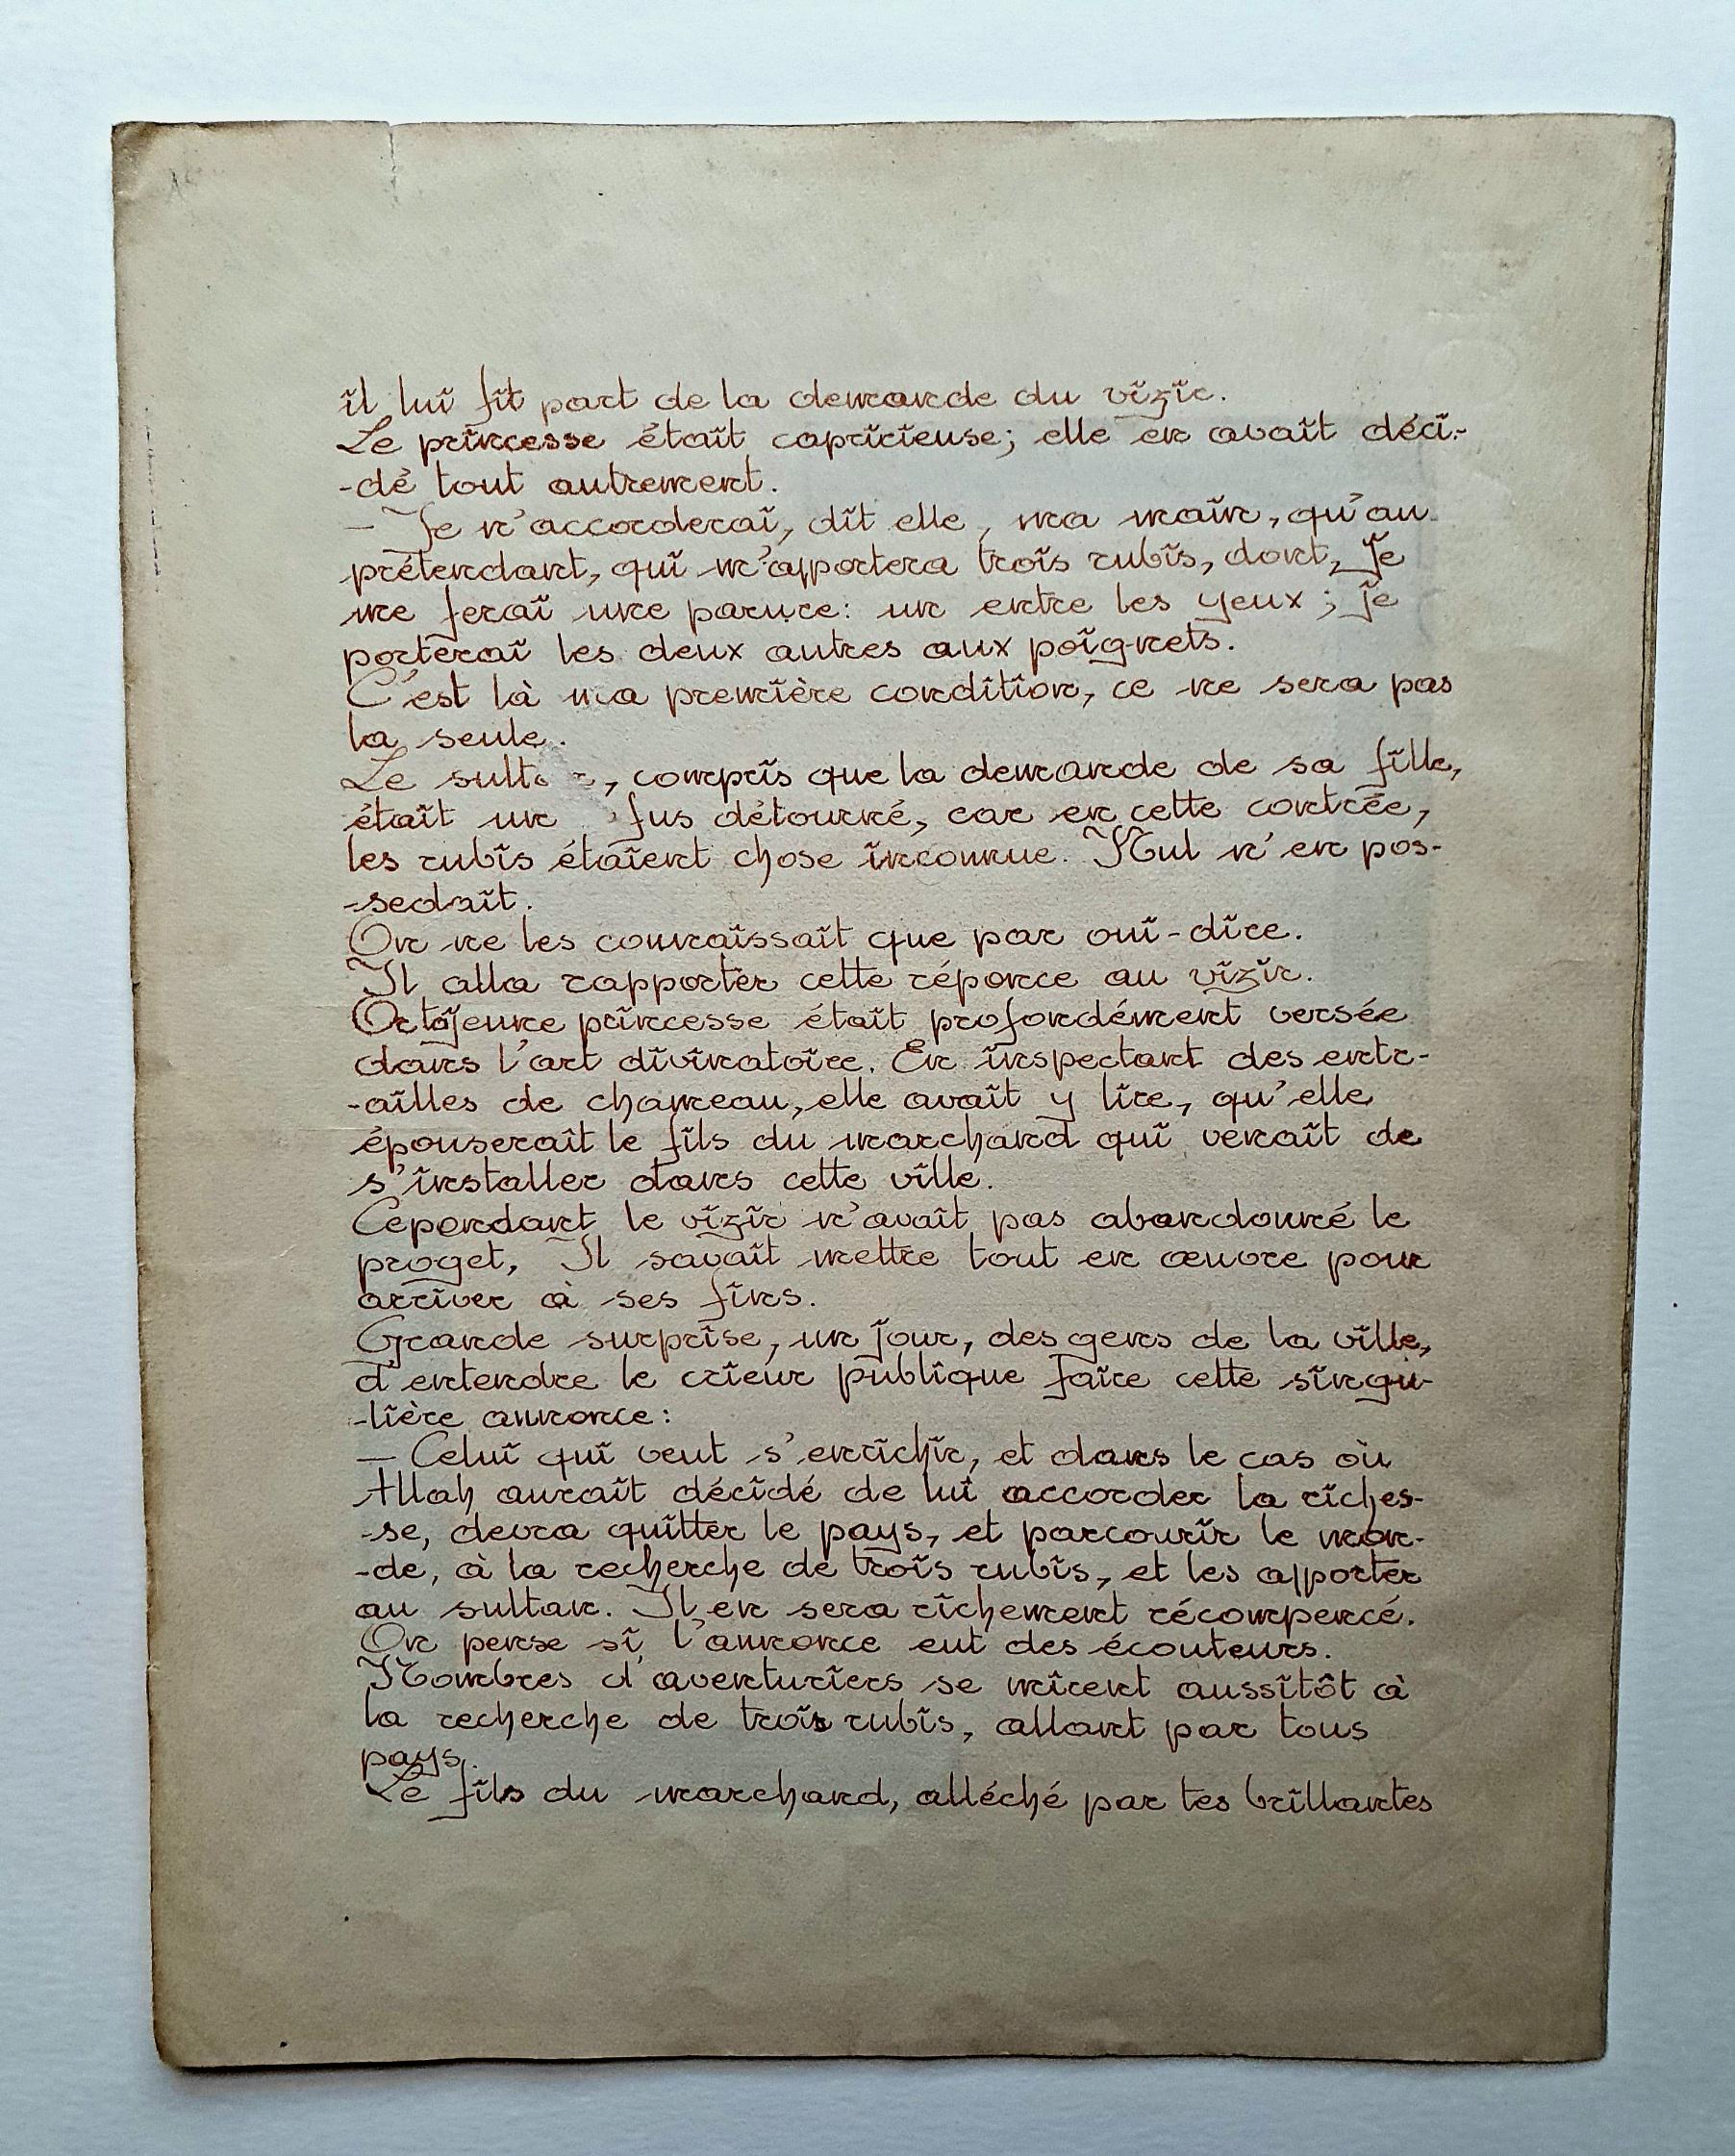 il lui fit part de la demande du vizir.
Le princesse était capricieuse; elle en avait déci-
-dé tout autrement.
— Je n'accorderai, dit elle, ma main, qu'au
prétendant, qui m'apportera trois rubis, dont, je
me ferai une parure: un entre les yeux; je
porterai les deux autres aux poignets.
C'est là ma première condition, ce ne sera pas
la seule.
Le , compris que la demande de sa fille,
était un détourné, car en cette contrée,
les rubis étaient chose inconnue. Nul n'en pos-
-sedait.
On ne les connaissait que par oui-dire.
Il alla rapporter cette réponce au vizir.
Or la jeune princesse était profondément versée
dans l'art divinatoire. En inspectant des entr-
-ailles de chameau, elle avait y lire, qu'elle
épouserait le fils du marchand qui venait de
s'installer dans cette ville.
Cependant le vizir n'avait pas abandonné le
proget, Il savait mettre tout en œuvre pour
arriver à ses fins.
Grande surprise, un jour, des gens de la ville,
d'entendre le crieur publique faire cette singu-
-lière annonce:
— Celui qui veut s'enrichir, et dans le cas où
Allah aurait décidé de lui accorder la riches-
-se, devra quitter le pays, et parcourir le mon-
-de, à la recherche de trois rubis, et les apporter
au sultan. Il en sera richement récompencé.
On pense si l'annonce eut des écouteurs.
Nombres d'aventuriers se mirent aussitôt à
la recherche de trois rubis, allant par tous
pays.
Le fils du marchand, alléché par tes brillantes